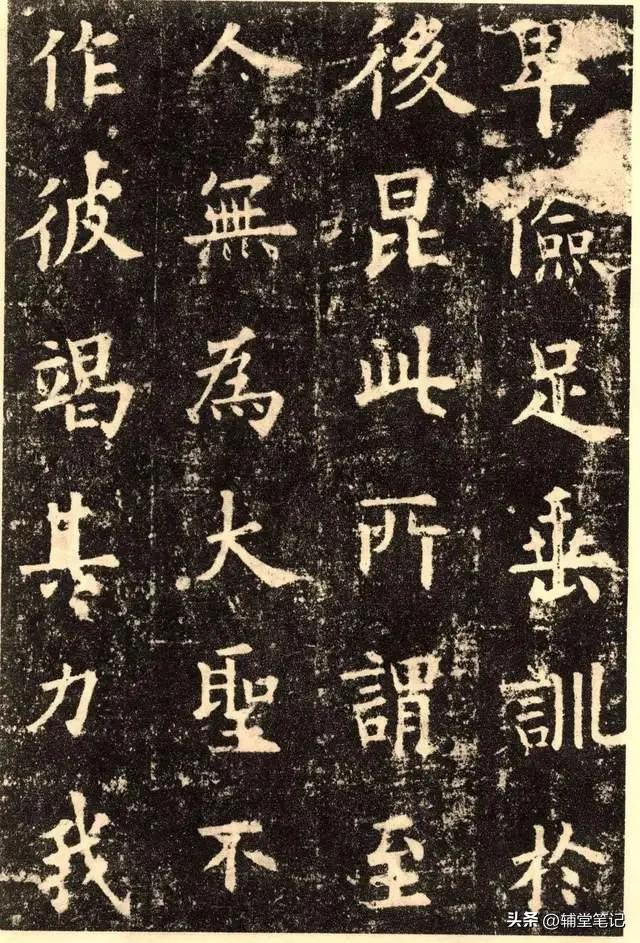 卑儉足垂訓於
後昆此所謂至
人無為大聖不
作彼竭其力我
头条 @辅堂笔记